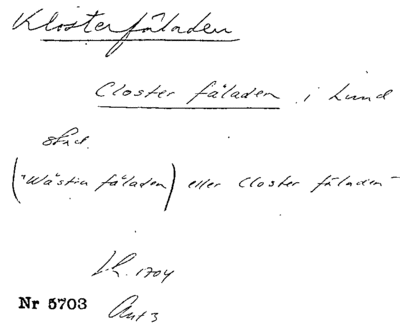 Klosterfäladen
Closter fäladen i Lund
stad.
("Wästra fäladen) eller Closter fäladen"
1704
Nr 5703
Ant 3